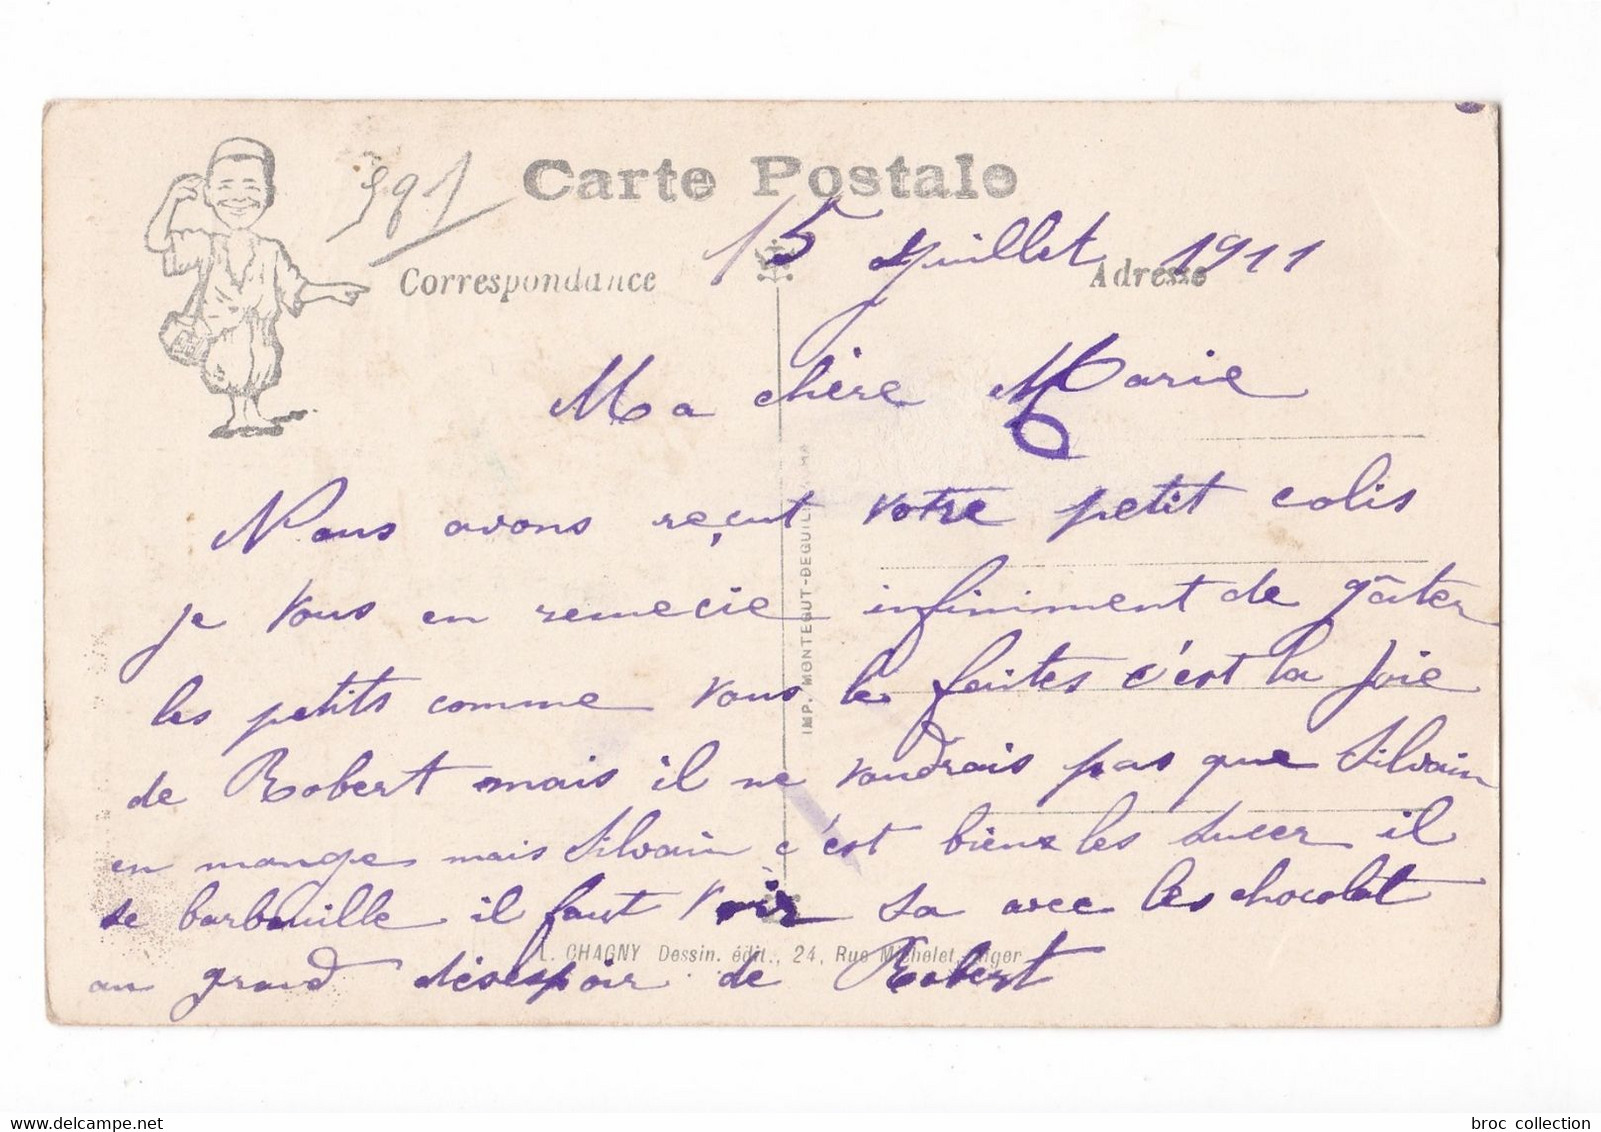 391
Carte Postale
15 Juillet 1911
Correspondance
Adresse
Ma chère Marie
Nous avons reçut votre petit colis
je vous en remecie infiniment de gâter
les petits comme vous le faites c'est la joie
de Robert mais il ne voudrais pas que Silvain
en mange mais Silvain c'est bien les sucer il
se barbouille il faut voir sa avec les chocolat
au grand désespoir de Robert
L. CHAGNY Dessin. édit., 24, Rue Michelet, Alger
IMP. MONTEGUT-DEGUILI
broc collection